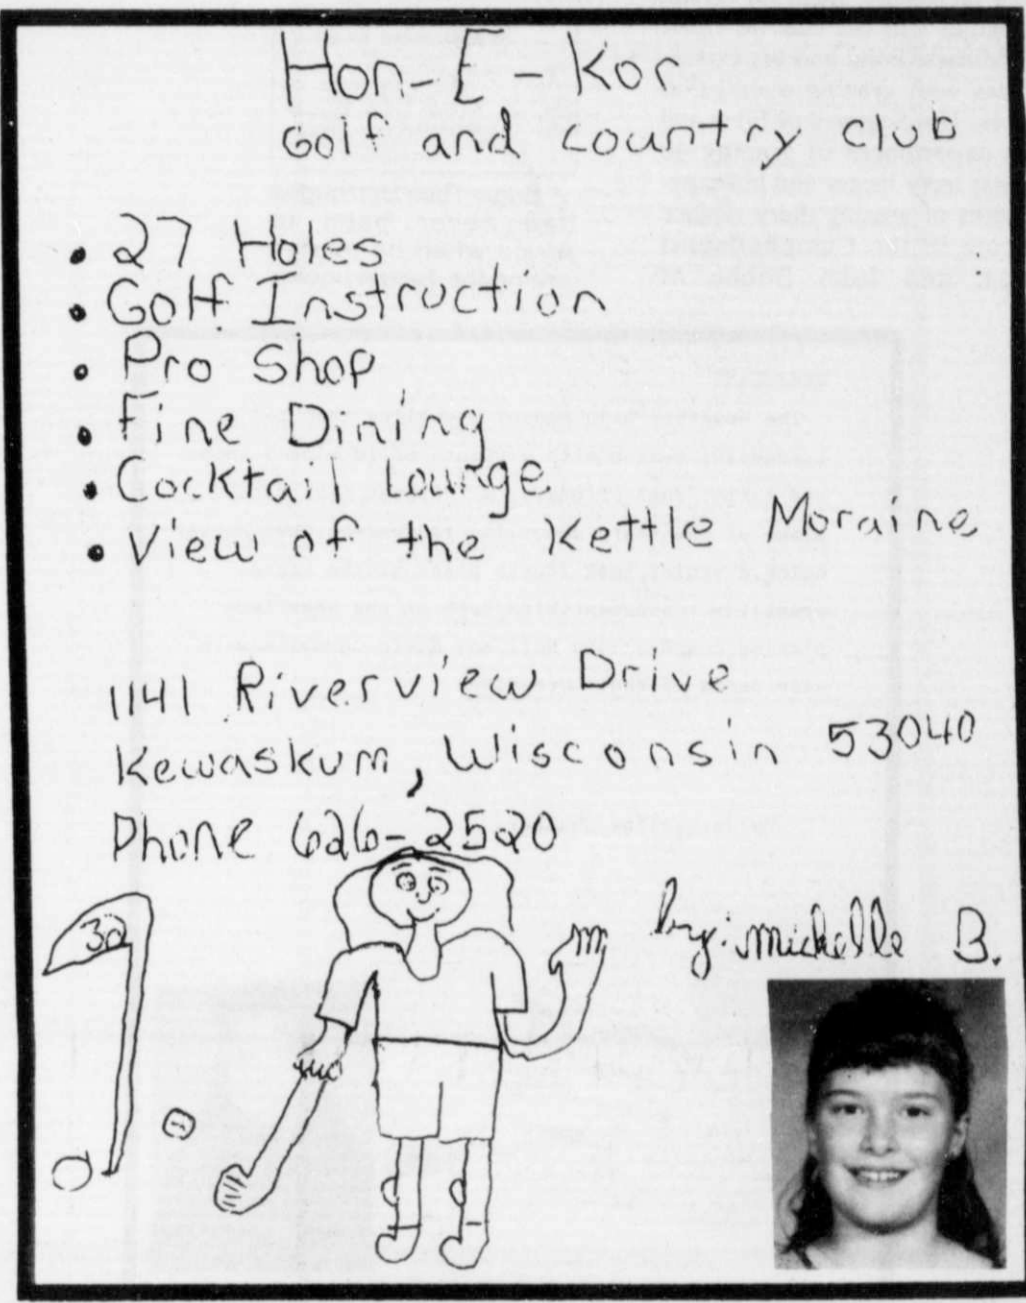 Hon-E-Kor
Golf and country club
• 27 Holes
• Golf Instruction
• Pro Shop
• Fine Dining
• Cocktail Lounge
• View of the Kettle Moraine
1141 Riverview Drive
Kewaskum, Wisconsin 53040
Phone 626-2520
by: michelle B.